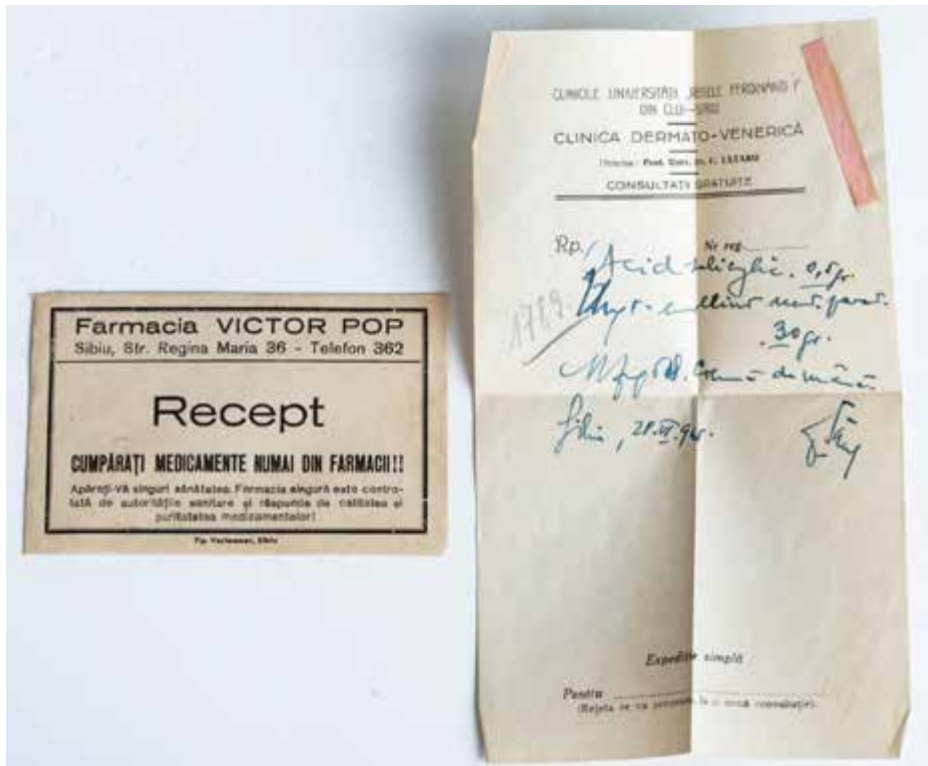 Farmacia VICTOR POP
Sibiu, Str. Regina Maria 36 - Telefon 362
Recept
CUMPĂRAȚI MEDICAMENTE NUMAI DIN FARMACII!!
Apărați-Vă singuri sănătatea. Farmacia singură este contro-
lată de autoritățile sanitare și răspunde de calitatea și
puritatea medicamentelor!
Tip. Vestemean, Sibiu
CLINICILE UNIVERSITĂȚII „REGELE FERDINAND I”
DIN CLUJ—SIBIU
CLINICA DERMATO-VENERICĂ
Prof. Univ.
CONSULTAȚII GRATUITE
Rp. Nr reg.
Acid salicylic. 0,5 gr.
30 gr.
1789.
Sibiu,
Expediție simplă
Pentru
(Rețeta se va prezenta la o nouă consultație).